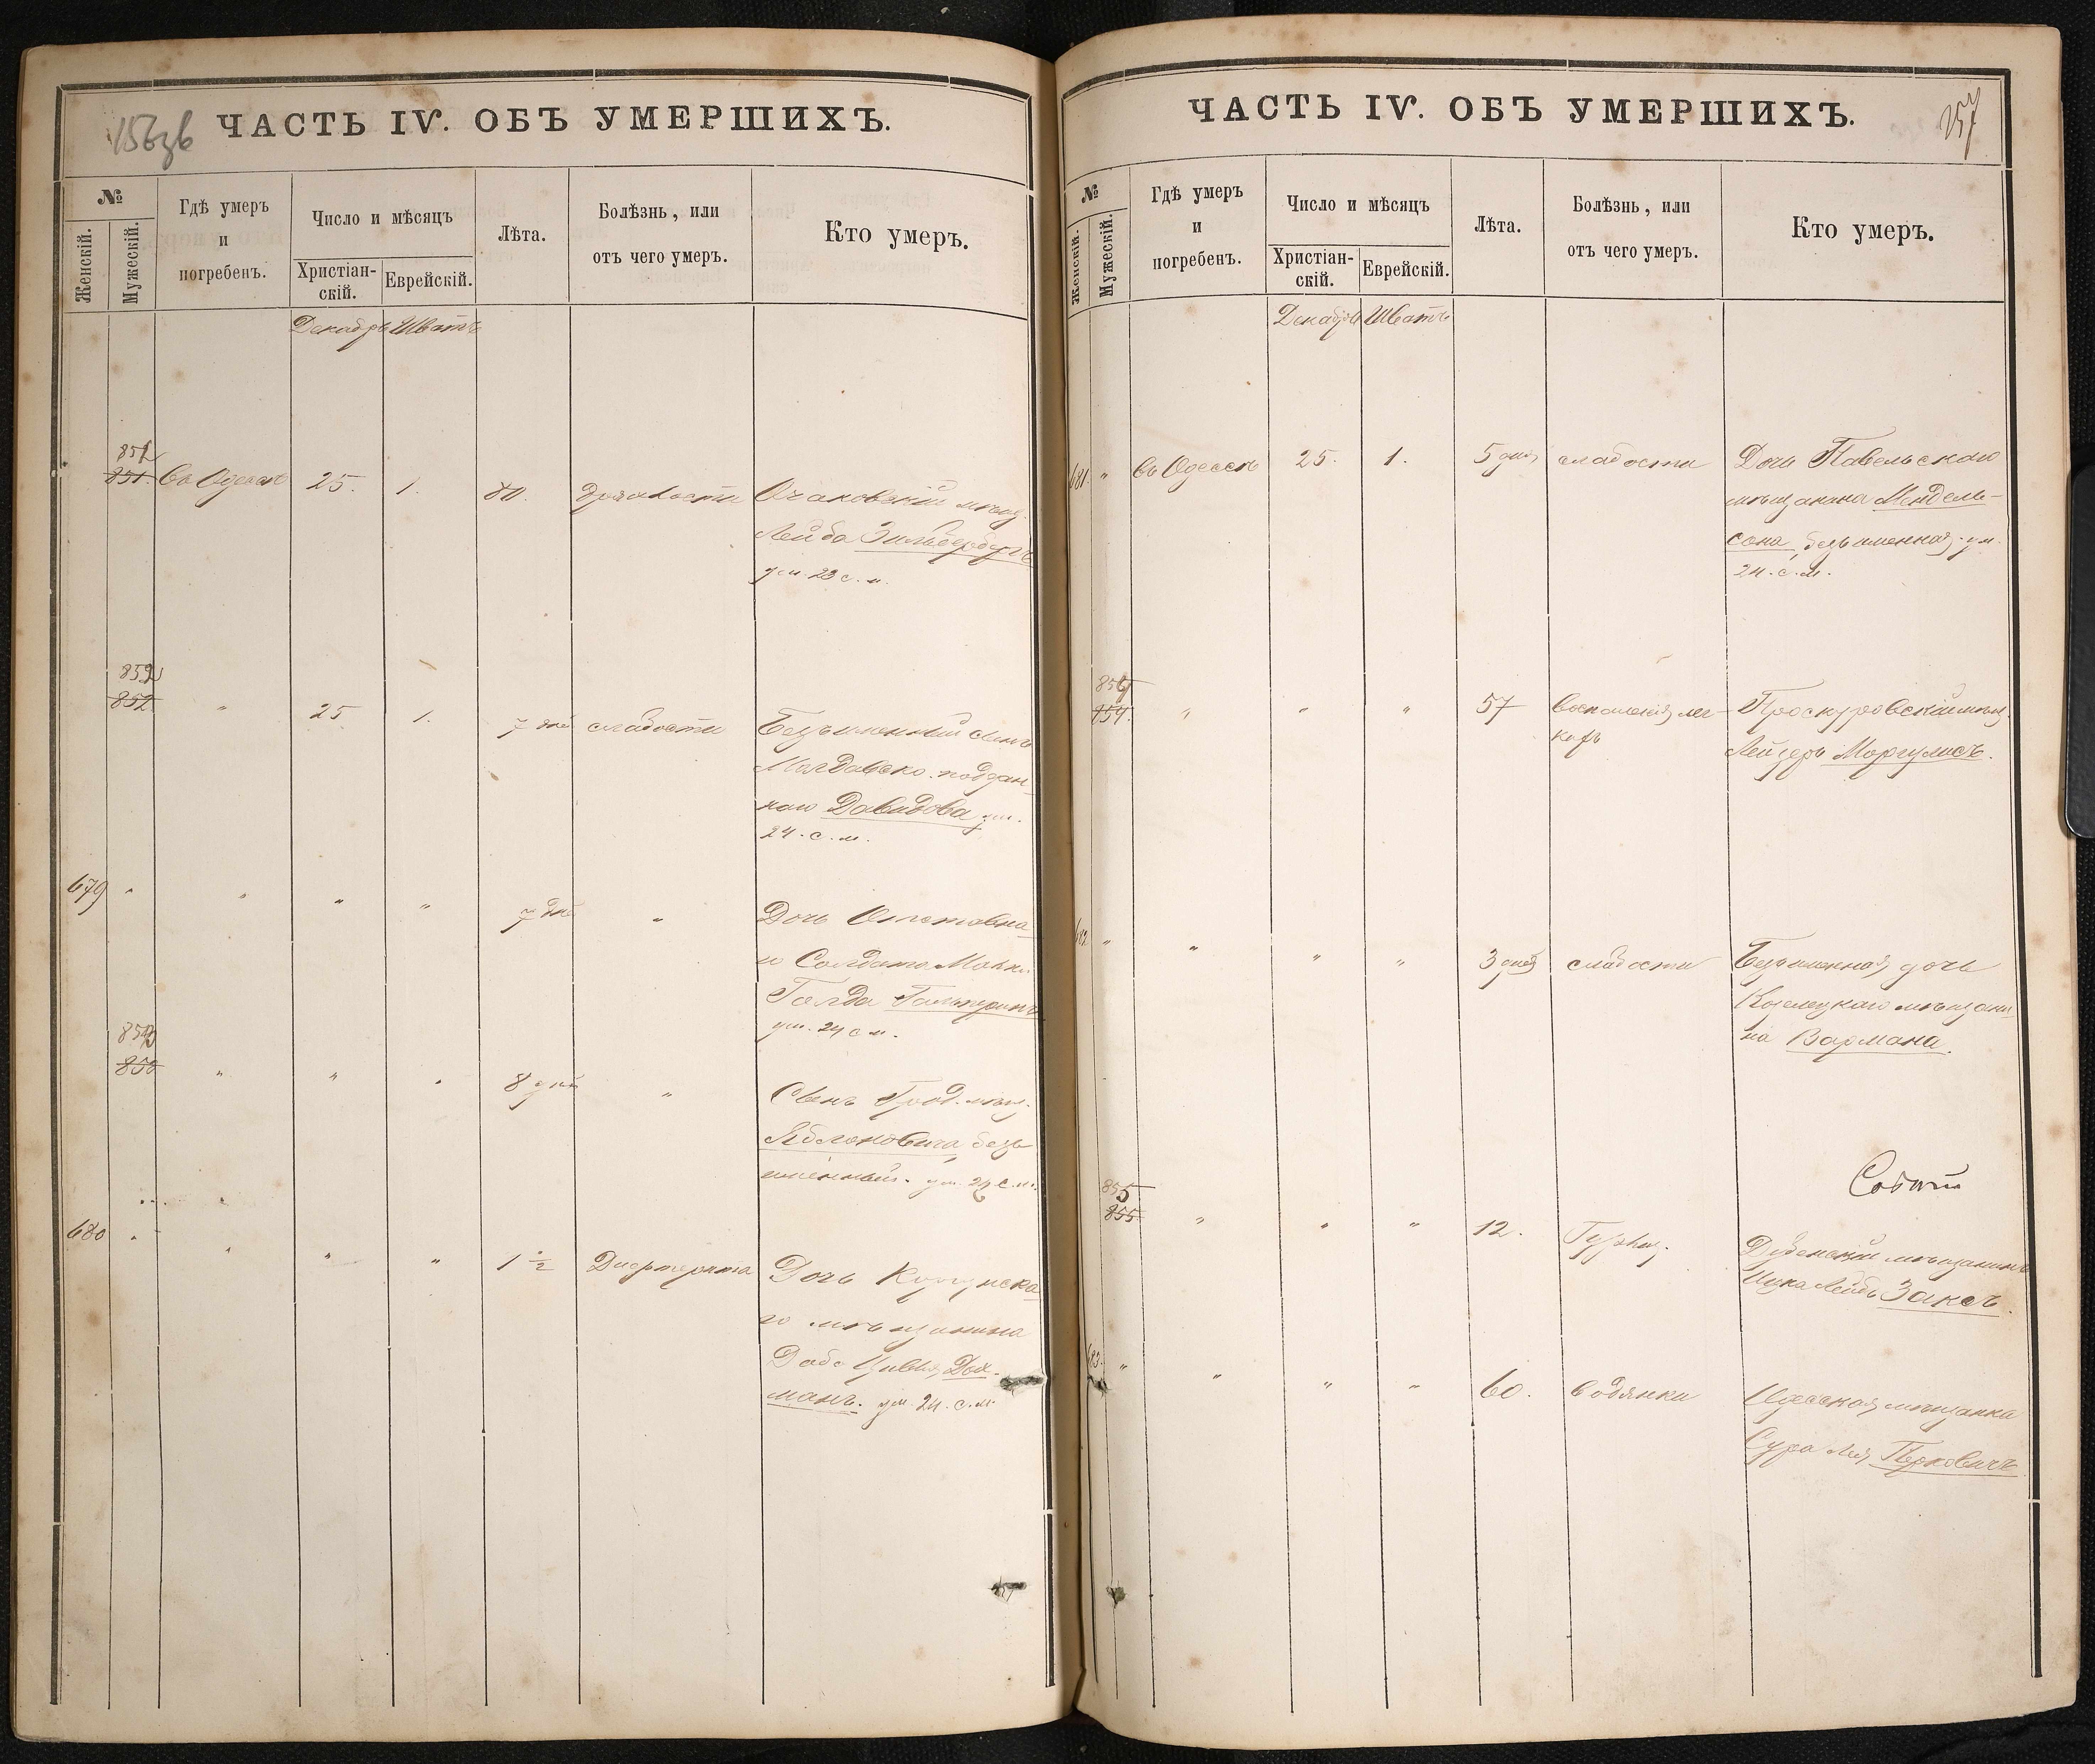 156об
ЧАСТЬ IV. ОБЪ УМЕРШИХЪ.
№
Женскій.
Мужескій.
Гдѣ умеръ
и
погребенъ.
Число и мѣсяцъ
Христіан-
скій.
Еврейскій.
Лѣта.
Болѣзнь, или
отъ чего умеръ.
Кто умеръ.
Декабрь Шватъ
851
851. Въ Одессѣ 25. 1. 80. дряхлости Очаковскій мѣщ.
Лейба Зильберберъ
ум. 23 с. м.
852
852. " 25 1. 7 дней слабости Безъименный сынъ
Молдавско. поддан-
наго Давидова ум.
24. с. м.
679 " " " " 7 дней " Дочь Отставна-
го Солдата
Голда Гальперинъ
ум. 24 с м.
853
" " " 8 дней " Сынъ Грод. мѣщ.
Яблоновича безъ
именный. ум. 24 с. м.
680 " " " " 1 1/2 Дифтерита Дочь
го мѣщанина
Добе Цивья Дых-
манъ. ум. 24. с. м.
157
ЧАСТЬ IV. ОБЪ УМЕРШИХЪ.
№
Женскій.
Мужескій.
Гдѣ умеръ
и
погребенъ.
Число и мѣсяцъ
Христіан-
скій.
Еврейскій.
Лѣта.
Болѣзнь, или
отъ чего умеръ.
Кто умеръ.
Декабрь Шватъ
681. " Въ Одессѣ 25. 1. 5 дней слабости Дочь Павельскаго
мѣщанина Мендель-
сона, безъименная. ум.
24. с. м.
854
854. " " " 57 Воспаленія лег-
кихъ
Проскуровскій мѣщ.
Лейзеръ Моргулисъ.
682 " " " " 3 дней слабости Безъименная дочь
Козелецкаго мѣщани-
на Вармана.
855
855. " " " 12. Дубенскій мѣщанинъ
Лейбъ Заксъ.
683. " " " " 60. Водянки Одесская мѣщанка
Сура Лея Перковичъ